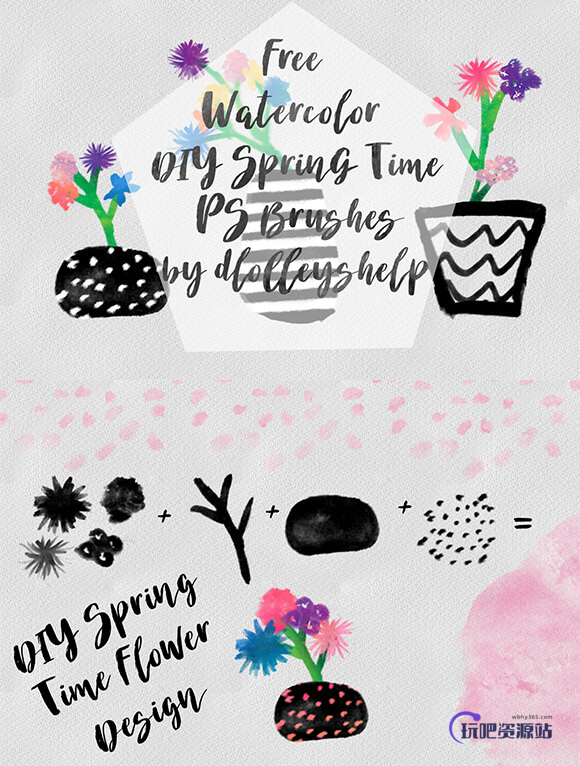 Free
Watercolor
DIY Spring Time
PS Brushes
by dlolleyshelp
+ + + =
DIY Spring
Time Flower
Design
wbhy365.com
玩吧资源站